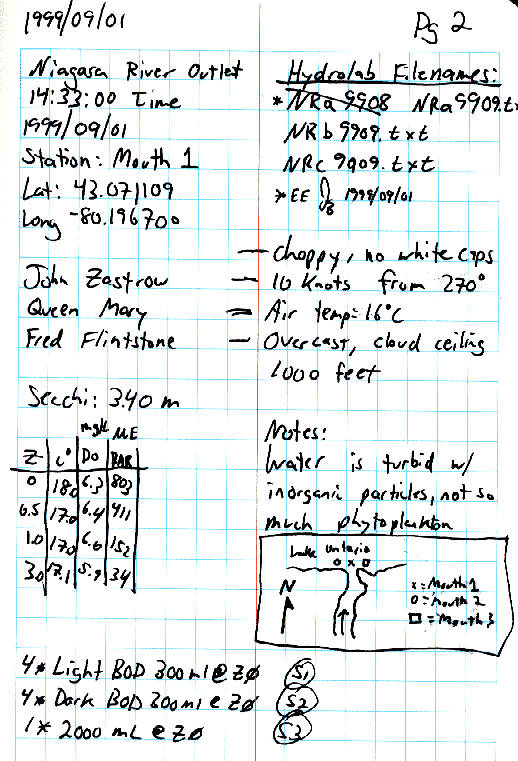 1999/09/01
Pg 2
Niagara River Outlet
14:33:00 Time
1999/09/01
Station: Mouth 1
Lat: 43.071109
Long -80.196700
John Zastrow
Queen Mary
Fred Flintstone
Secchi: 3.40 m
mg/l ME
Z C° DO PAR
0 18.0 6.3 803
0.5 17.0 6.4 411
1.0 17.0 6.0 152
3.0 17.1 5.9 34
Hydrolab Filenames:
* NRa 9908 NRa9909.tx
NRb9909.txt
NRc9909.txt
* EE 1999/09/01
— Choppy, no white caps
— 10 Knots from 270°
— Air temp= 16°C
— Overcast, cloud ceiling
1000 feet
Notes:
Water is turbid w/
inorganic particles, not so
much phytoplankton
Lake Ontario
o x □
N
x = Mouth 1
o = Mouth 2
□ = Mouth 3
4* Light BOD 300ml @ ZØ S1
4* Dark BOD 300ml @ ZØ S2
1* 2000 mL @ ZØ S3